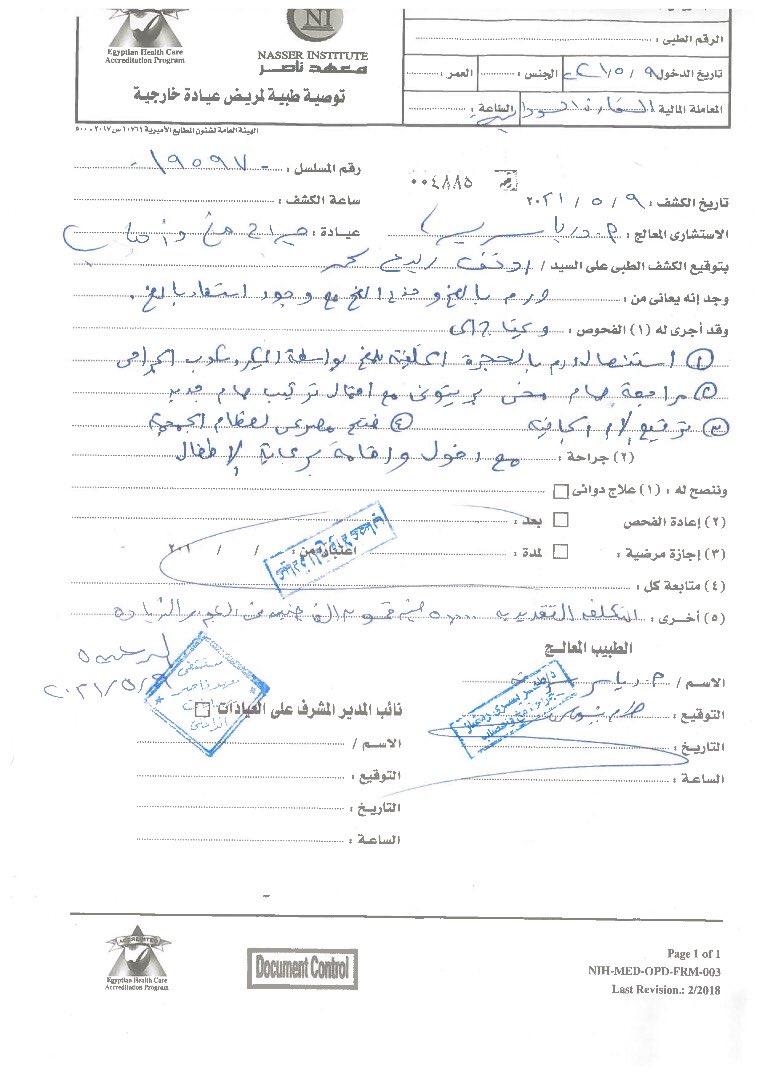 Egyptian Health Care
Accreditation Program
NI
NASSER INSTITUTE
معهد ناصر
توصية طبية لمريض عيادة خارجية
الرقم الطبى :
تاريخ الدخول : ٩ / ٥ / ٢١ الجنس : العمر :
المعاملة المالية : السفارة السودانية الساعة :
الهيئة العامة لشئون المطابع الأميرية ١٠٧٦١ س ٢٠١٧ - ٥٠٠
رقم المسلسل : ١٩٥٩٧
٠٠٤٨٨٥
تاريخ الكشف : ٩ / ٥ / ٢٠٢١
ساعة الكشف :
الاستشارى المعالج :
عيادة : جراحة مخ وأعصاب
بتوقيع الكشف الطبى على السيد /
وجد إنه يعانى من : ورم بالمخ وجذع المخ مع وجود استسقاء بالمخ .
وقد أجرى له (١) الفحوص :
① استئصال ورم بالحجرة الخلفية للمخ بواسطة الميكروسكوب الجراحى
② مراجعة صمام مخى بريتونى مع احتمال تركيب صمام جديد
③ ترقيع الأم الجافية ④ فتح مصرعى لعظام الجمجمة
(٢) جراحة : مع دخول وإقامة برعاية الأطفال
وننصح له : (١) علاج دوائى
(٢) إعادة الفحص بعد :
(٣) إجازة مرضية : لمدة : اعتباره من : / / ٢٠١
(٤) متابعة كل :
(٥) أخرى : التكلفة التقديرية
الطبيب المعالج
الاسم /
التوقيع :
التاريخ :
الساعة :
٩/٥/٢٠٢١
نائب المدير المشرف على العيادات
الاسم /
التوقيع :
التاريخ :
الساعة :
ACCREDITED
Egyptian Health Care
Accreditation Program
Document Control
Page 1 of 1
NIH-MED-OPD-FRM-003
Last Revision.: 2/2018